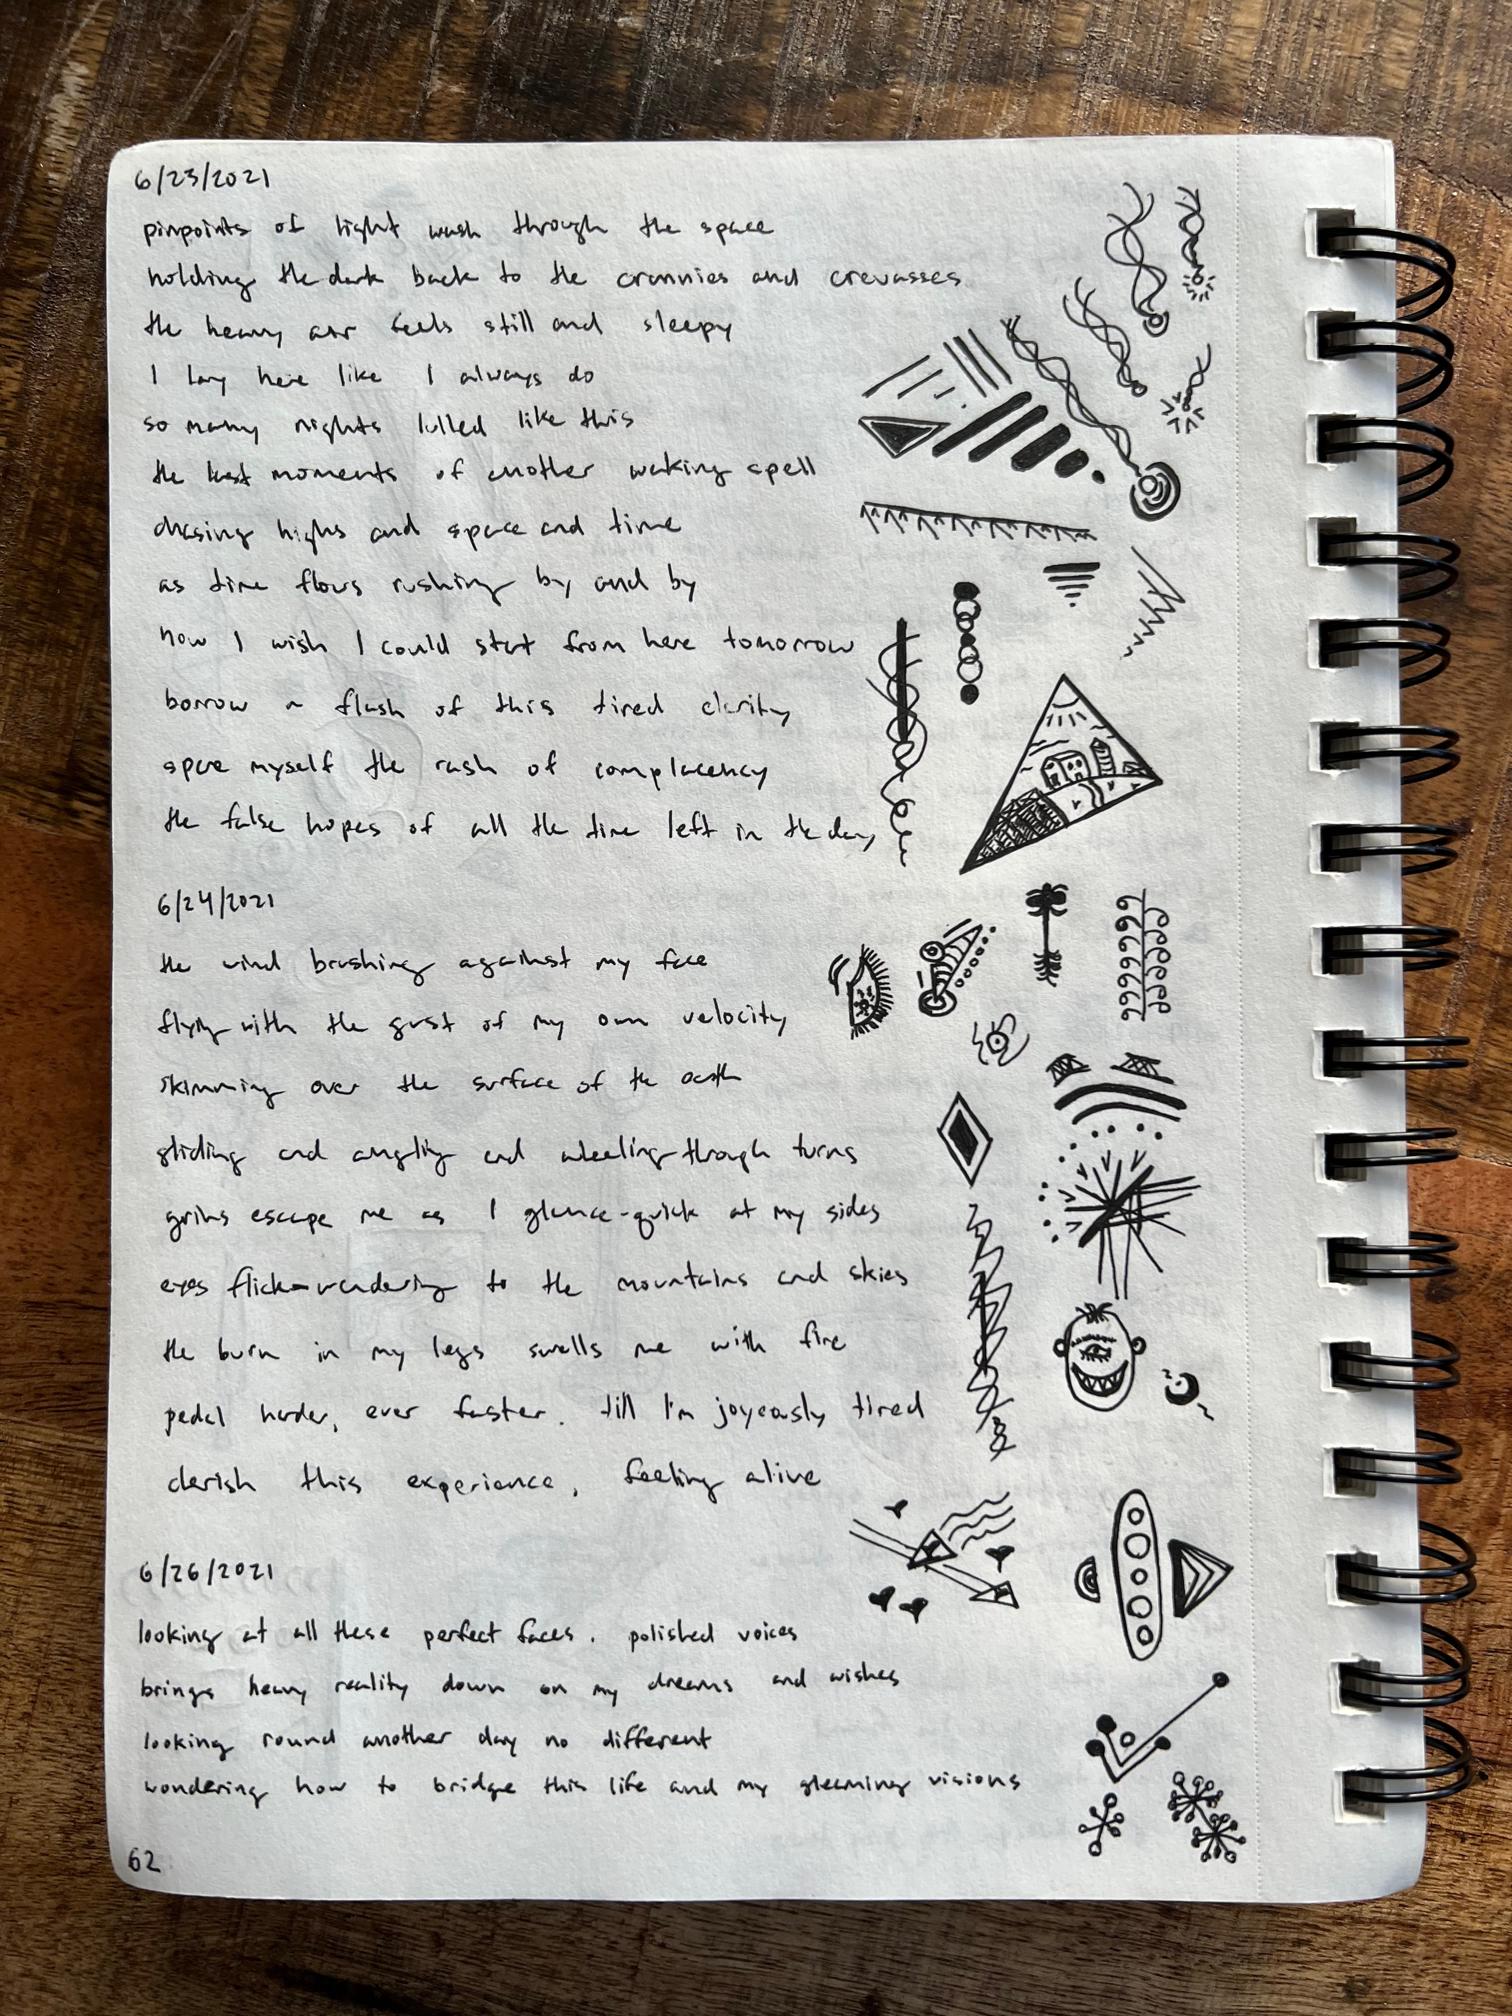 6/23/2021
pinpoints of light wash through the space
holding the dark back to the crannies and crevasses
the heavy air feels still and sleepy
I lay here like I always do
so many nights lulled like this
the last moments of another waking spell
chasing highs and space and time
as time flows rushing by and by
how I wish I could start from here tomorrow
borrow a flash of this tired clarity
spare myself the rush of complacency
the false hopes of all the time left in the day
6/24/2021
the wind brushing against my face
flying with the gust of my own velocity
skimming over the surface of the earth
gliding and angling and wheeling through turns
grins escape me as I glance-quick at my sides
eyes flick-wandering to the mountains and skies
the burn in my legs swells me with fire
pedal harder, ever faster. till I'm joyeously tired
cherish this experience, feeling alive
6/26/2021
looking at all these perfect faces. polished voices
brings heavy reality down on my dreams and wishes
looking round another day no different
wondering how to bridge this life and my gleaming visions
62